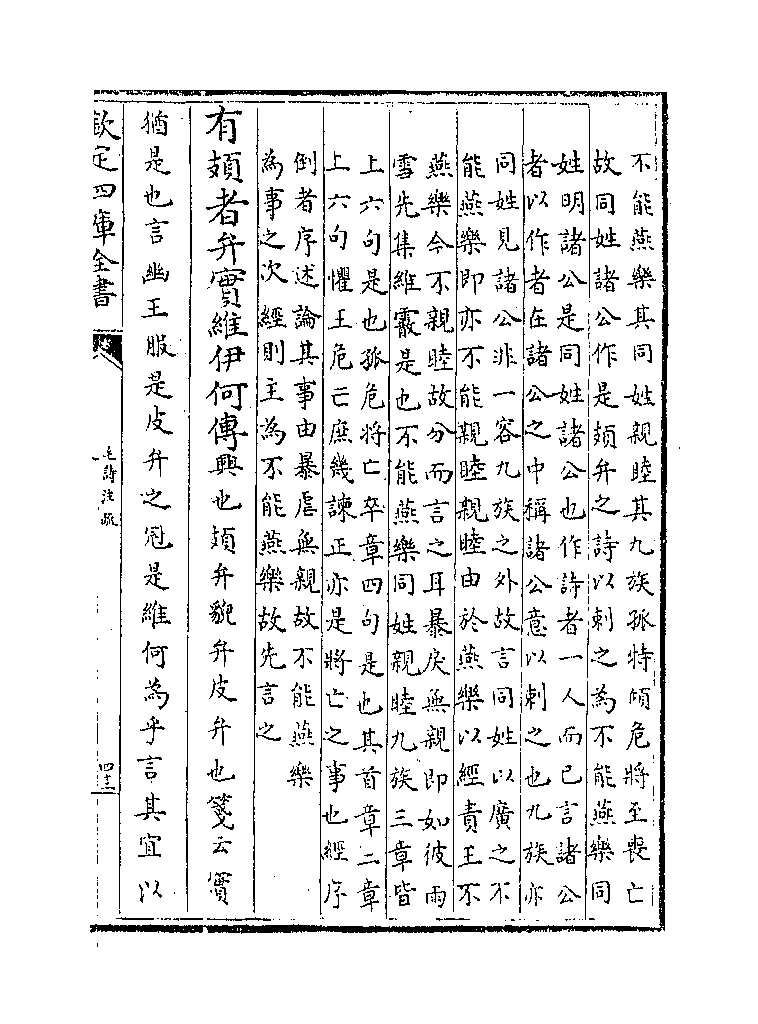 不能燕樂其同姓親睦其九族孤特傾危將至喪亡
故同姓諸公作是頍弁之詩以刺之為不能燕樂同
姓明諸公是同姓諸公也作詩者一人而已言諸公
者以作者在諸公之中稱諸公意以刺之也九族亦
同姓見諸公非一容九族之外故言同姓以廣之不
能燕樂即亦不能親睦親睦由於燕樂以經責王不
燕樂今不親睦故分而言之耳暴戾無親即如彼雨
雪先集維霰是也不能燕樂同姓親睦九族三章皆
上六句是也孤危將亡卒章四句是也其首章二章
上六句懼王危亡庶幾諫正亦是將亡之事也經序
倒者序述論其事由暴虐無親故不能燕樂
為事之次經則主為不能燕樂故先言之
有頍者弁實維伊何傳興也頍弁貌弁皮弁也箋云實
猶是也言幽王服是皮弁之冠是維何為乎言其宜以
欽定四庫全書
毛詩注疏
四十三